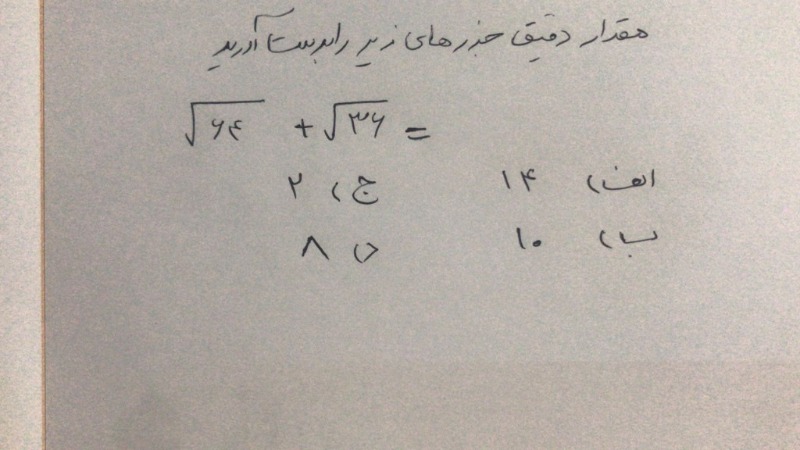 مقدار دقیق جذرهای زیر را بدست آورید
√۶۴ + √۳۶ =
الف) ۱۴ ج) ۲
ب) ۱۰ د) ۸